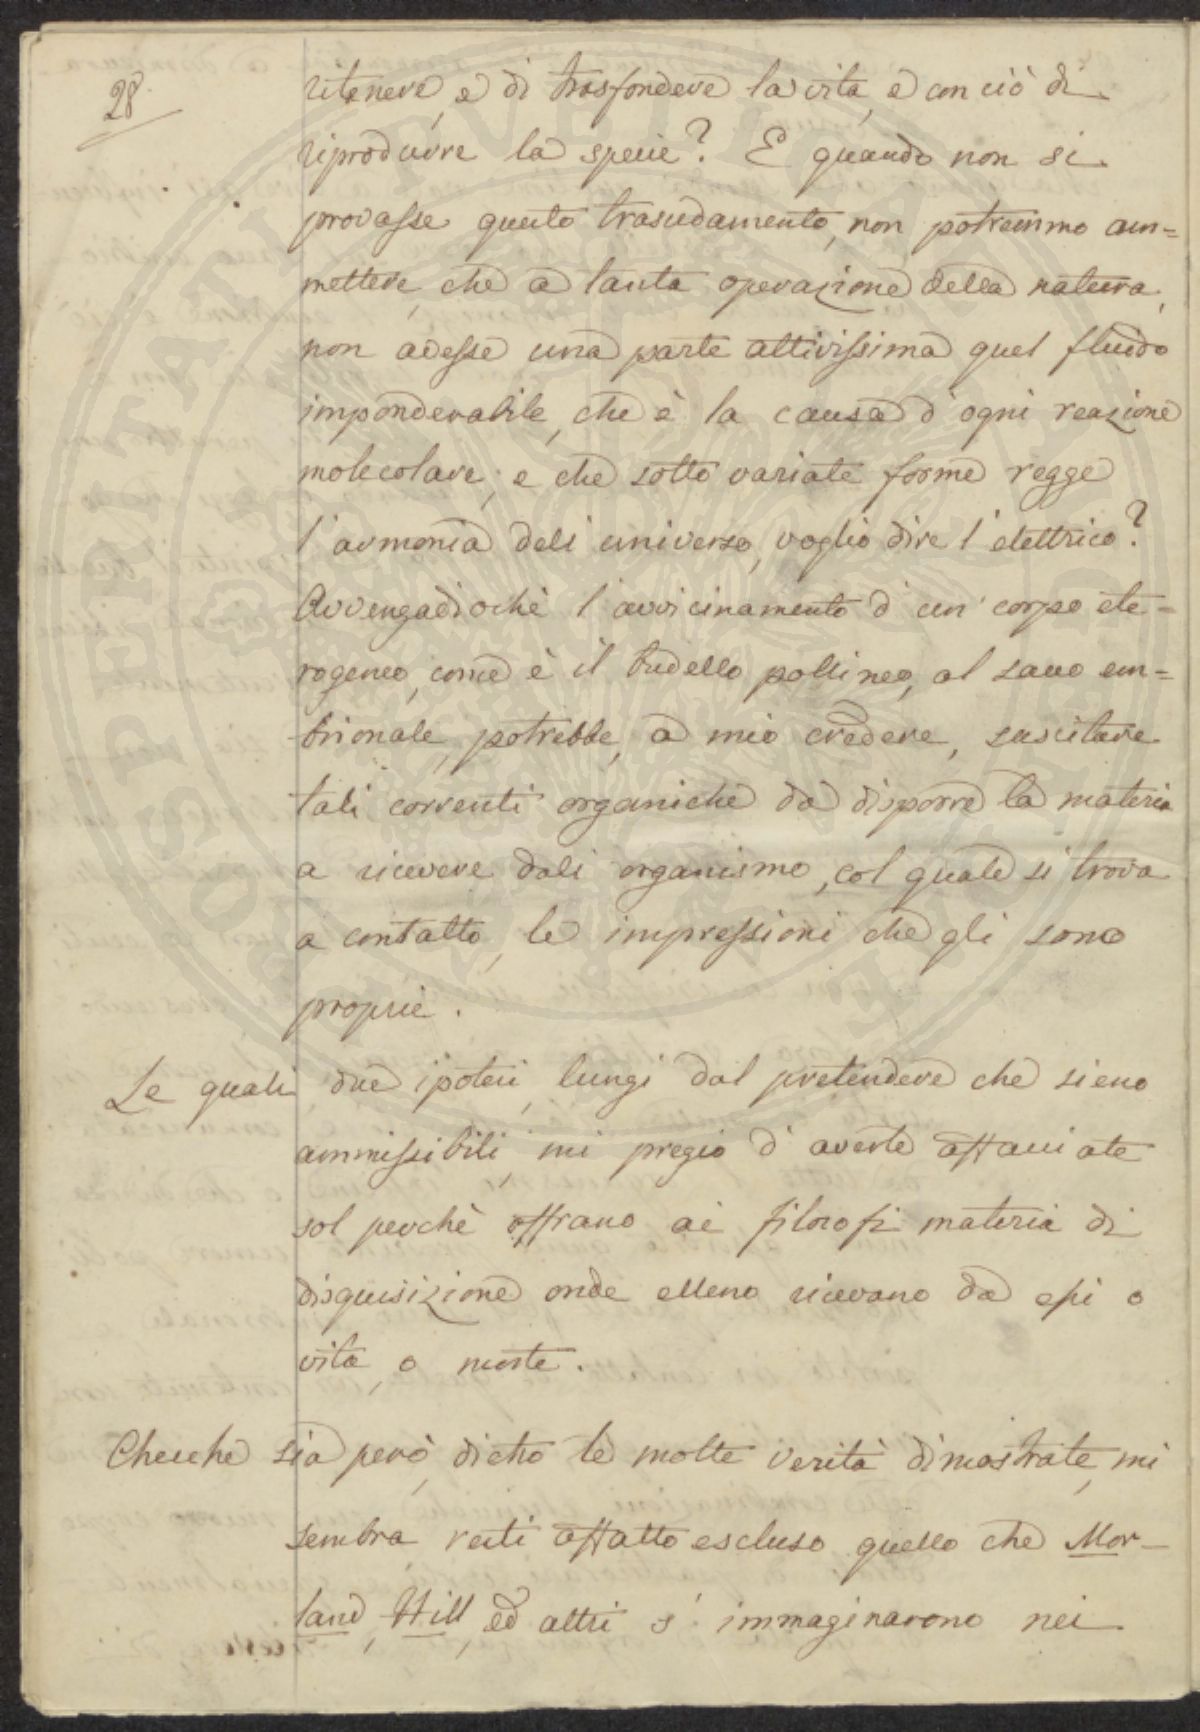 28.
ritenere, e di trasfondere la vita, e con ciò di
riprodurre la specie? E quando non si
provasse questo trasudamento, non potremmo am=
mettere, che a tanta operazione della natura,
non avesse una parte attivissima quel fluido
imponderabile, che è la causa d'ogni reazione
molecolare; e che sotto variate forme regge
l'armonia dell'universo, voglio dire l'elettrico?
Avvengadiochè l'avvicinamento d'un corpo ete=
rogeneo, come è il budello pollineo, al sacco em=
brionale, potrebbe, a mio credere, suscitare
tali correnti organiche da disporre la materia
a ricevere dall'organismo, col quale si trova
a contatto, le impressioni che gli sono
proprie.
Le quali due ipotesi, lungi dal pretendere che sieno
ammissibili, mi pregio d'averle affacciate
sol perchè offrano ai filosofi materia di
disquisizione onde elleno ricevano da essi o
vita, o morte.
Checchè sia però, dietro le molte verità dimostrate, mi
sembra resti affatto escluso quello che Mor-
land, Hill, ed altri s'immaginarono nei
OSPERITATI PVBLICAE